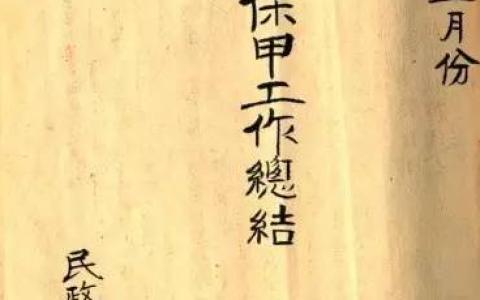 月份
保甲工作總結
民政